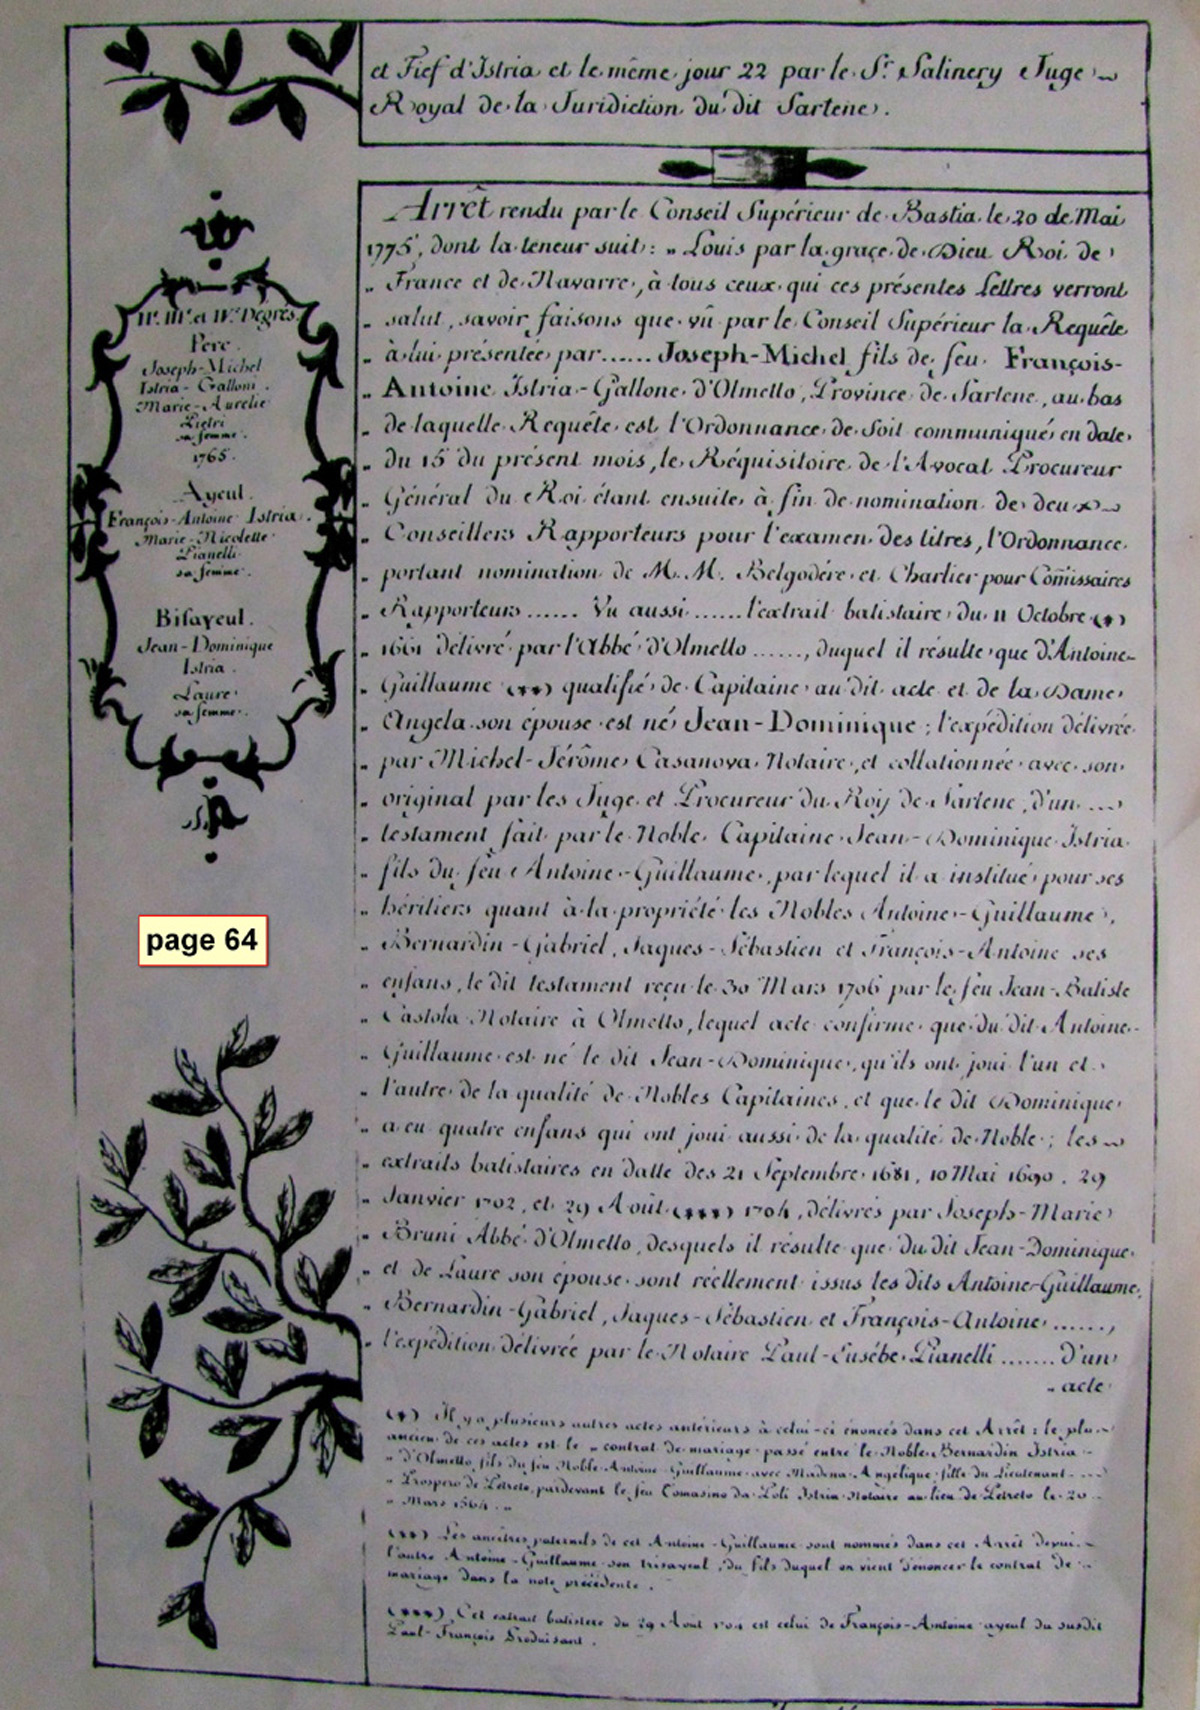 et Fief d'Istria et le même jour 22 par le Sr. Salinery Juge
Royal de la Juridiction du dit Sartene.
Arrêt rendu par le Conseil Supérieur de Bastia le 20 de Mai
1775, dont la teneur suit : „ Louis par la grace de Dieu Roi de
„ France et de Navarre, à tous ceux qui ces présentes Lettres verront
„ salut, savoir faisons que vû par le Conseil Supérieur la Requête
„ à lui présentée par...... Joseph-Michel fils de feu François-
„ Antoine Istria-Gallone d'Olmetto, Province de Sartene, au bas
„ de laquelle Requête est l'Ordonnance de Soit communiqué en date
„ du 15 du présent mois, le Réquisitoire de l'Avocat Procureur
„ Général du Roi étant ensuite à fin de nomination de deux
„ Conseillers Rapporteurs pour l'examen des titres, l'Ordonnance
„ portant nomination de M. M. Belgodére et Charlier pour Comissaires
„ Rapporteurs ...... Vu aussi ...... l'extrait batistaire du 11 Octobre (*)
„ 1661 délivré par l'Abbé d'Olmetto ......, duquel il résulte que d'Antoine-
„ Guillaume (**) qualifié de Capitaine au dit acte et de la Dame
„ Angela son épouse est né Jean-Dominique ; l'expédition délivrée
„ par Michel-Jérôme Casanova Notaire, et collationnée avec son
„ original par les Juge et Procureur du Roy de Sartene, d'un ...
„ testament fait par le Noble Capitaine Jean-Dominique Istria
„ fils du feu Antoine-Guillaume, par lequel il a institué pour ses
„ héritiers quant à la propriété les Nobles Antoine-Guillaume,
„ Bernardin-Gabriel, Jaques-Sébastien et François-Antoine ses
„ enfans, le dit testament reçu le 30 Mars 1706 par le feu Jean-Batiste
„ Castola Notaire à Olmetto, lequel acte confirme que du dit Antoine-
„ Guillaume est né le dit Jean-Dominique, qu'ils ont joui l'un et
„ l'autre de la qualité de Nobles Capitaines, et que le dit Dominique
„ a eu quatre enfans qui ont joui aussi de la qualité de Noble ; les
„ extraits batistaires en datte des 21 Septembre 1681, 10 Mai 1690, 29
„ Janvier 1702, et 29 Août (***) 1704, délivrés par Joseph-Marie
„ Bruni Abbé d'Olmetto, desquels il résulte que du dit Jean-Dominique
„ et de Laure son épouse sont réellement issus les dits Antoine-Guillaume,
„ Bernardin-Gabriel, Jaques-Sébastien et François-Antoine ......,
„ l'expédition délivrée par le Notaire Paul-Eusébe Pianelli ....... d'un
„ acte
(*) Il y a plusieurs autres actes antérieurs à celui-ci énoncés dans cet Arrêt : le plus
ancien de ces actes est le „ contrat de mariage passé entre le Noble Bernardin Istria
„ d'Olmetto fils du feu Noble Antoine-Guillaume avec Madena Angélique fille du Lieutenant
„ Prospero de Petreto, pardevant le feu Comasino da Poli Istria Notaire au lieu de Petreto le 20
„ Mars 1564. „
(**) Les ancêtres paternels de cet Antoine-Guillaume sont nommés dans cet Arrêt depui
l'autre Antoine-Guillaume son trisayeul, du fils duquel on vient d'énoncer le contrat de
mariage dans la note précédente.
(***) Cet extrait batistere du 29 Août 1704 est celui de François-Antoine ayeul du susdit
Paul-François Produisant.
IIe. IIIe. et IVe. Dégrés.
Père.
Joseph-Michel
Istria-Galloni.
Marie-Aurelie
Pietri
sa femme.
1765.
Ayeul.
François-Antoine Istria.
Marie-Nicolette
Pianelli
sa femme.
Bisayeul.
Jean-Dominique
Istria.
Laure
sa femme.
page 64